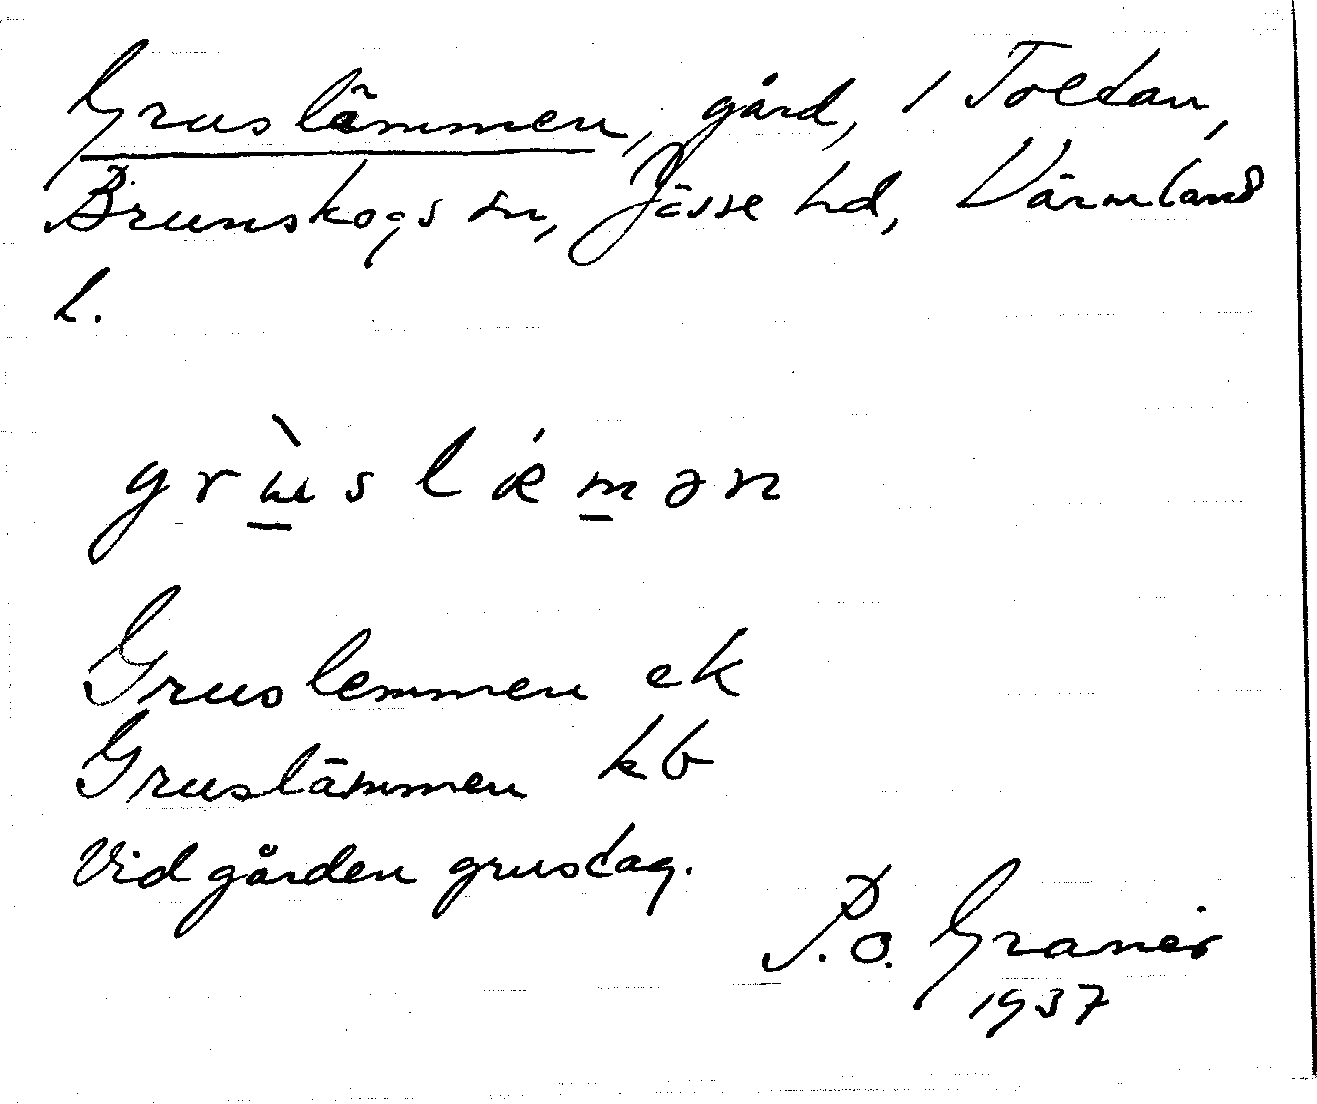 Gruslämmen, gård, 1 Toltan,
Brunskogs sn, Jösse hd, Värmlands
l.
grùslǽmən
Gruslemmen ek
Gruslämmen kb
Vid gården grustag.
P. O. Granér
1937